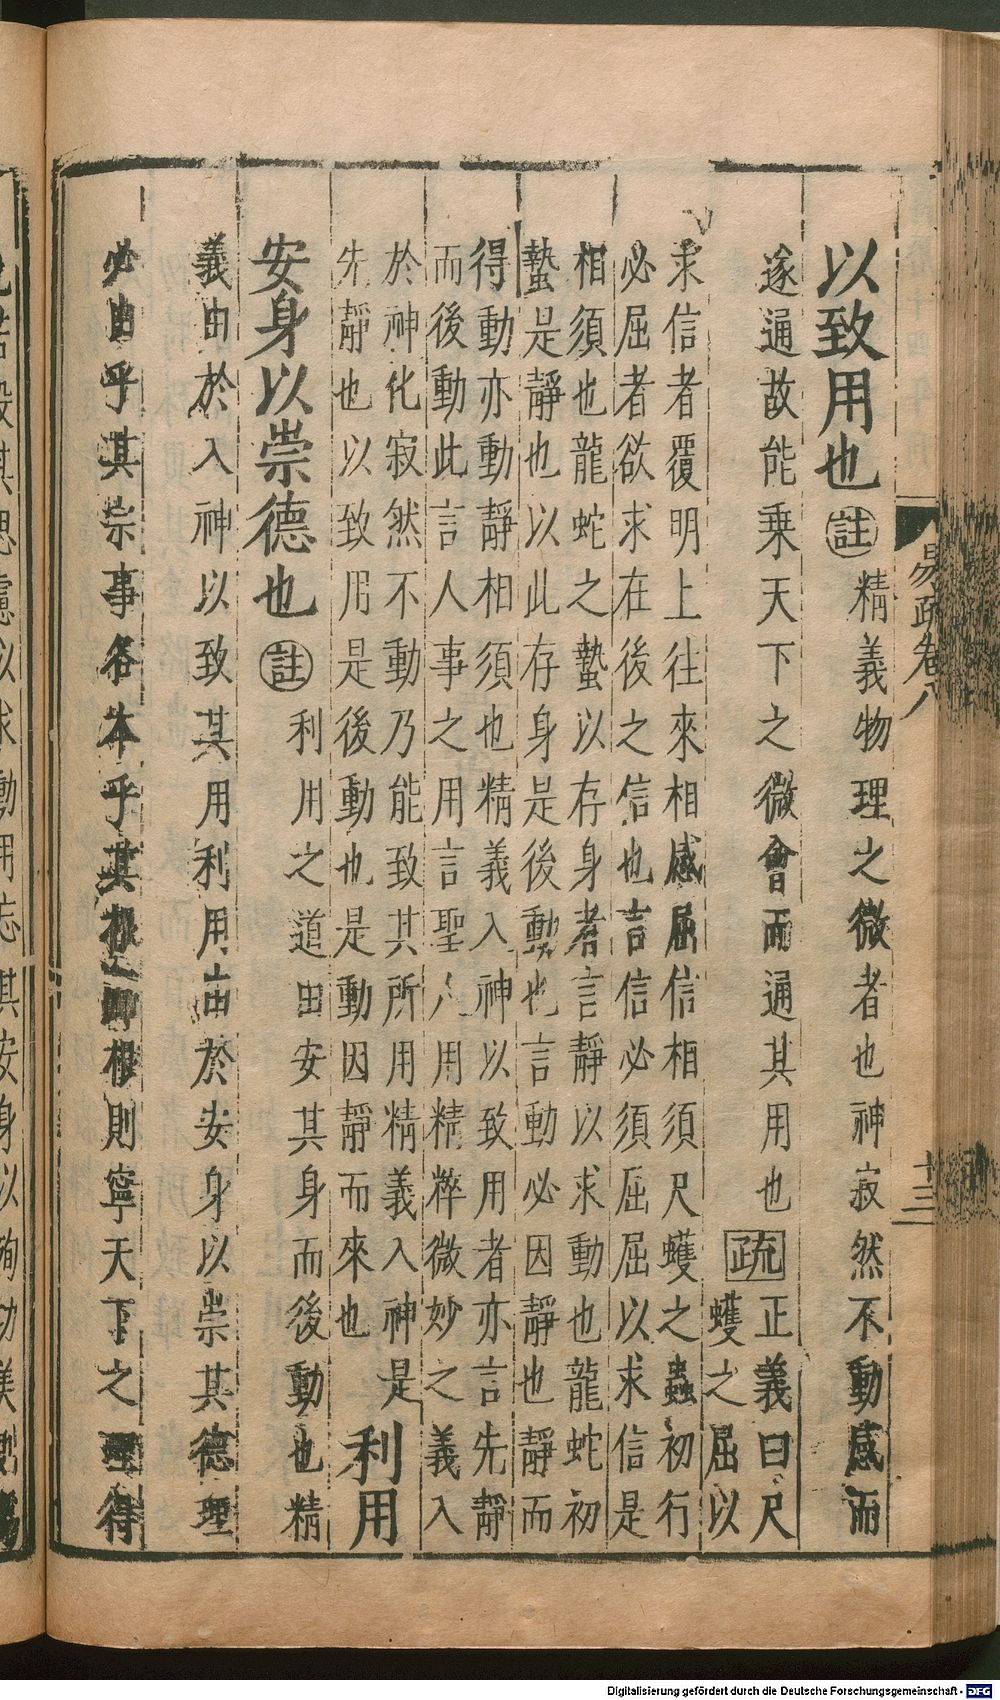 易疏卷八 十三
以致用也註精義物理之微者也神寂然不動感而
遂通故能乘天下之微會而通其用也疏正義曰尺
蠖之屈以
求信者覆明上往來相感屈信相須尺蠖之蟲初行
必屈者欲求在後之信也言信必須屈屈以求信是
相須也龍蛇之蟄以存身者言靜以求動也龍蛇初
蟄是靜也以此存身是後動也言動必因靜也靜而
得動亦動靜相須也精義入神以致用者亦言先靜
而後動此言人事之用言聖人用精粹微妙之義入
於神化寂然不動乃能致其所用精義入神是
先靜也以致用是後動也是動因靜而來也
利用
安身以崇德也註利用之道由安其身而後動也精
義由於入神以致其用利用由於安身以崇其德理
必由乎其宗事各本乎其根則寧天下之理得
其思慮以求動用忘其安身以殉功美
Digitalisierung gefördert durch die Deutsche Forschungsgemeinschaft - DFG